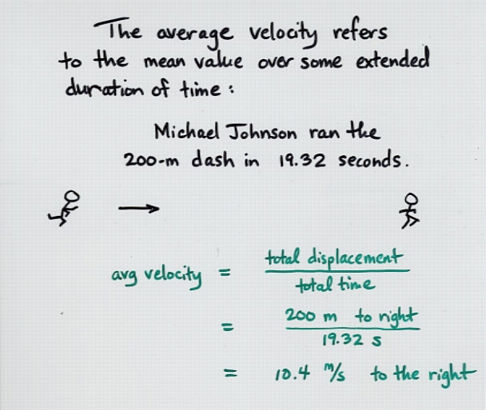 The average velocity refers
to the mean value over some extended
duration of time :
Michael Johnson ran the
200-m dash in 19.32 seconds.
avg velocity = total displacement
total time
= 200 m to right
19.32 s
= 10.4 m/s to the right